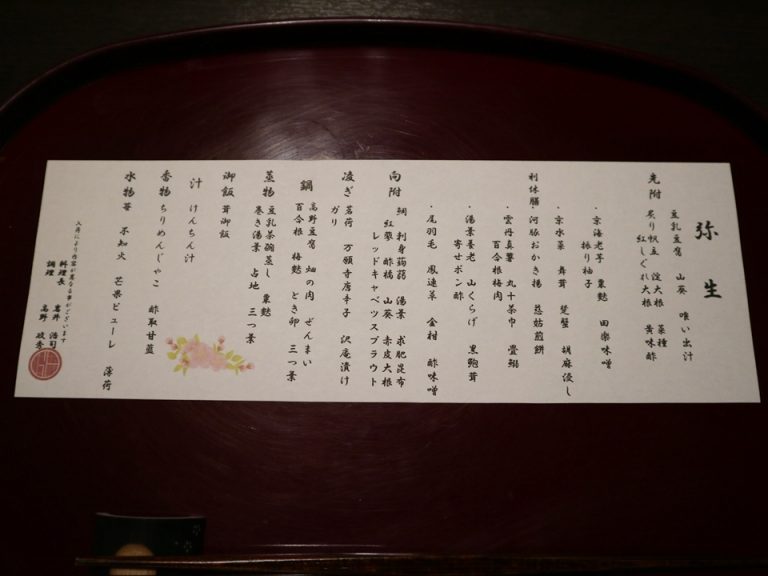 弥生
豆乳豆腐 山葵 唯い出汁
先附 炙り帆立 淀大根 菜種
紅しぐれ大根 黄味酢
・京海老芋 粟麩 田楽味噌
振り柚子
・京水菜 舞茸 楚蟹 胡麻浸し
利休膳・河豚おかき揚 慈姑煎餅
・雲丹真薯 丸十茶巾 畳鰯
百合根梅肉
・湯葉養老 山くらげ 黒鮑茸
寄せポン酢
・尾羽毛 鳳連草 金柑 酢味噌
向附 鯛 刺身蒟蒻 湯葉 求肥昆布
紅蓼 酢橘 山葵 赤皮大根
レッドキャベツスプラウト
凌ぎ 茗荷 万願寺唐辛子 沢庵漬け
ガリ
鍋 高野豆腐 畑の肉 ぜんまい
百合根 梅麩 とき卵 三つ葉
蒸物 豆乳茶碗蒸し 粟麩
巻き湯葉 占地 三つ葉
御飯 茸御飯
汁 けんちん汁
香物 ちりめんじゃこ 酢取甘藍
水物 苺 不知火 芒果ピューレ 薄荷
入荷により内容が異なる事がございます
料理長 岩井 浩司
調理 高野 峻秀